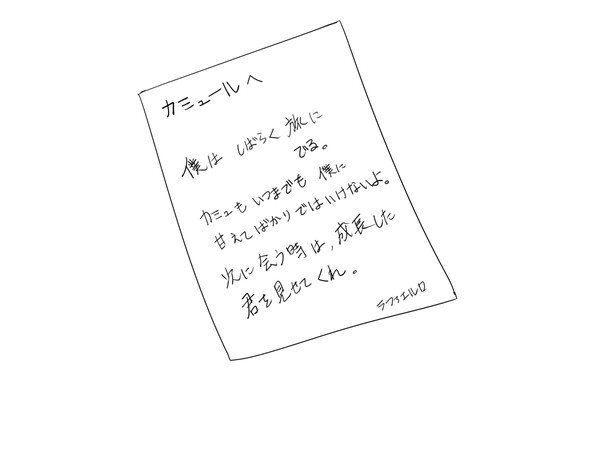 カミュールへ
僕は しばらく 旅に
でる。
カミュも いつまでも 僕に
甘えてばかりではいけないよ。
次に会う時は、成長した
君を見せてくれ。
ラファエルロ